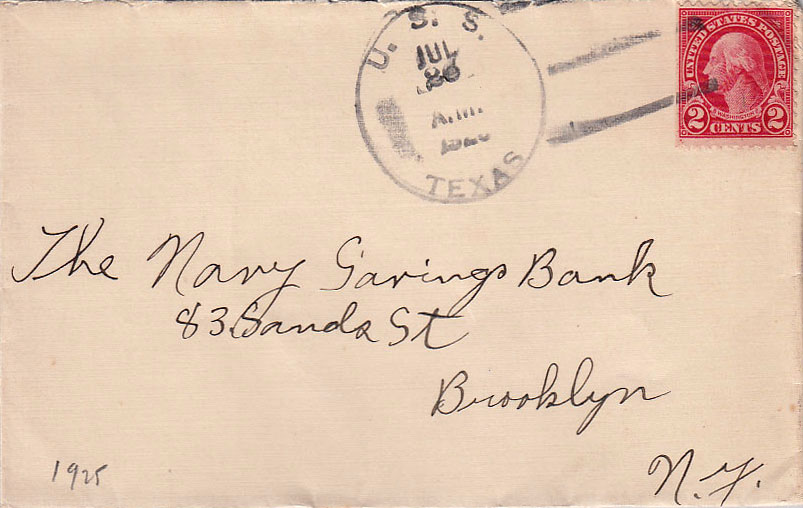 U. S. S.
JUL
26
A.M.
TEXAS
UNITED STATES POSTAGE
WASHINGTON
2 CENTS 2
The Navy Savings Bank
83 Sands St
Brooklyn
N.Y.
1925